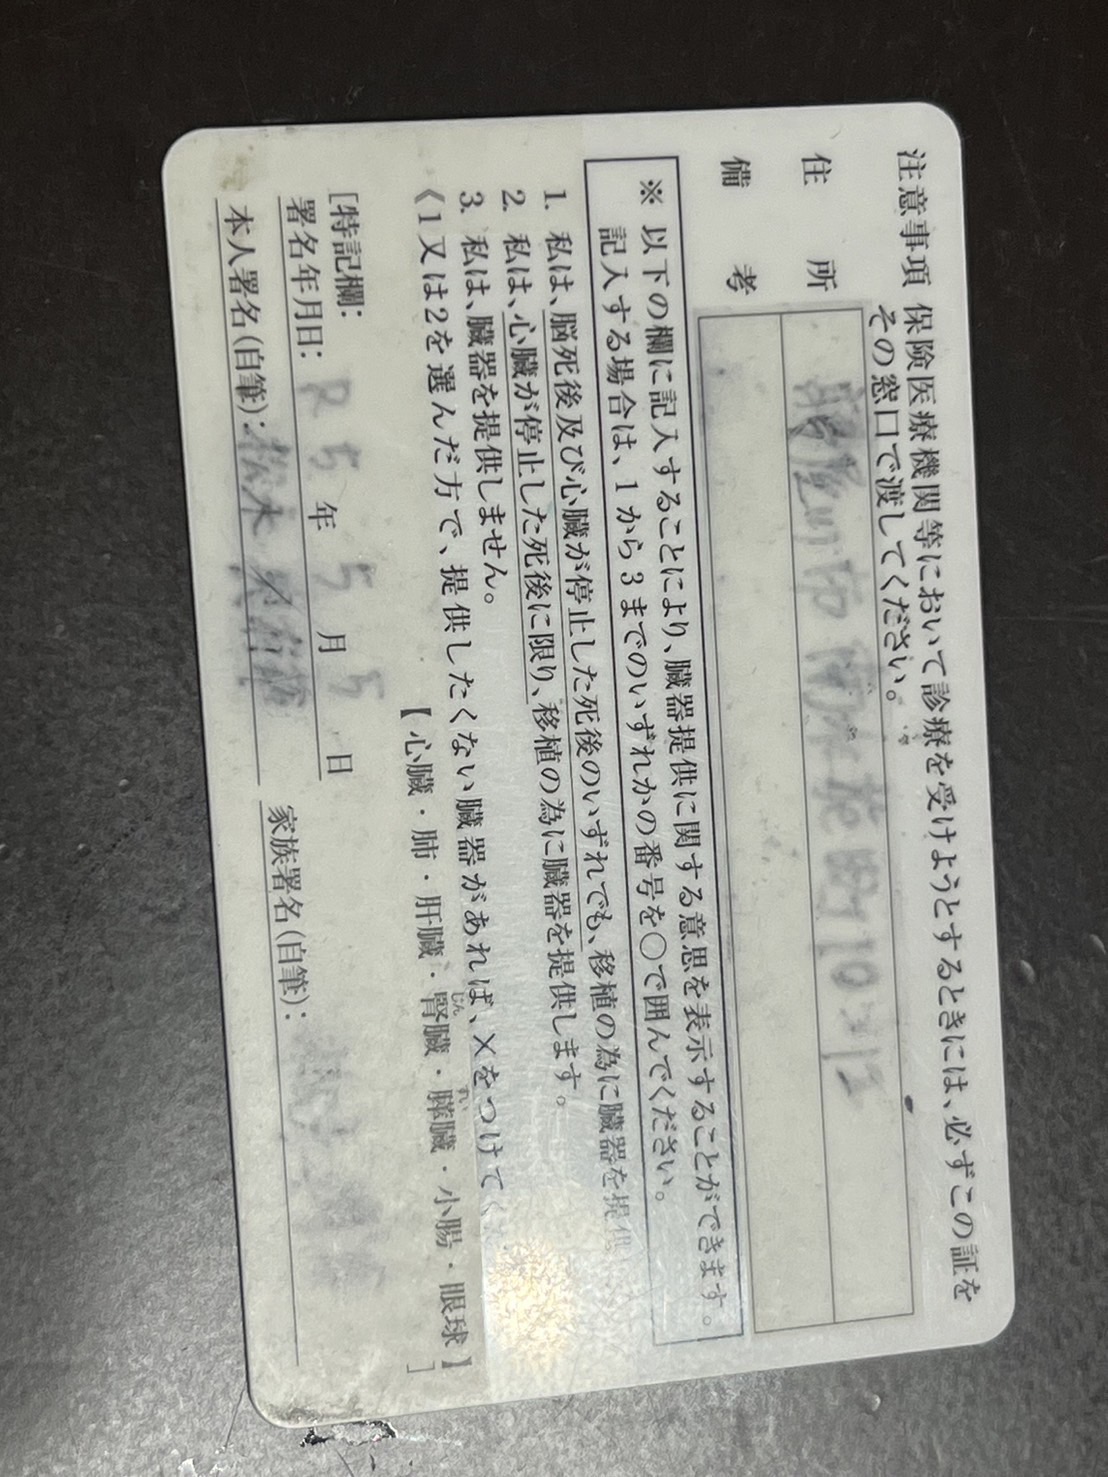 注意事項 保険医療機関等において診療を受けようとするときには、必ずこの証を
その窓口で渡してください。
住所 町10-12
備考
※ 以下の欄に記入することにより、臓器提供に関する意思を表示することができます。
記入する場合は、1から3までのいずれかの番号を○で囲んでください。
1. 私は、脳死後及び心臓が停止した死後のいずれでも、移植の為に臓器を提供
2. 私は、心臓が停止した死後に限り、移植の為に臓器を提供します。
3. 私は、臓器を提供しません。
《1又は2を選んだ方で、提供したくない臓器があれば、×をつけて
【心臓・肺・肝臓・腎臓・膵臓・小腸・眼球】
[特記欄: ]
署名年月日: R 5 年 5 月 5 日
本人署名(自筆): 家族署名(自筆):